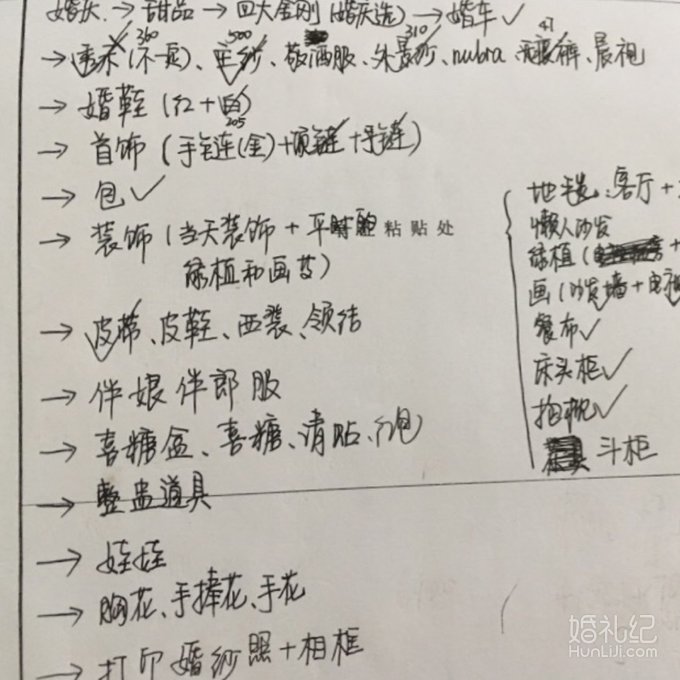 婚庆 → 甜品 → 四大金刚(婚庆选) → 婚车 ✓
360 500 310 41
→ 秀禾(不卖)、主纱、敬酒服、外景纱、nubra、无痕裤、晨袍
→ 婚鞋(红+白)
205
→ 首饰(手链(金)+项链+手链)
→ 包 ✓
→ 装饰(当天装饰 + 平时的
粘贴处
绿植和画等)
→ 皮带、皮鞋、西装、领结
→ 伴娘伴郎服
→ 喜糖盒、喜糖、请贴、红包
→ 整蛊道具
→ 娃娃
→ 胸花、手捧花、手花
→ 打印婚纱照+相框
地毯:客厅+
懒人沙发
绿植(
画(沙发墙+电视
餐布 ✓
床头柜 ✓
抱枕 ✓
斗柜
婚礼纪
HunLiji.com